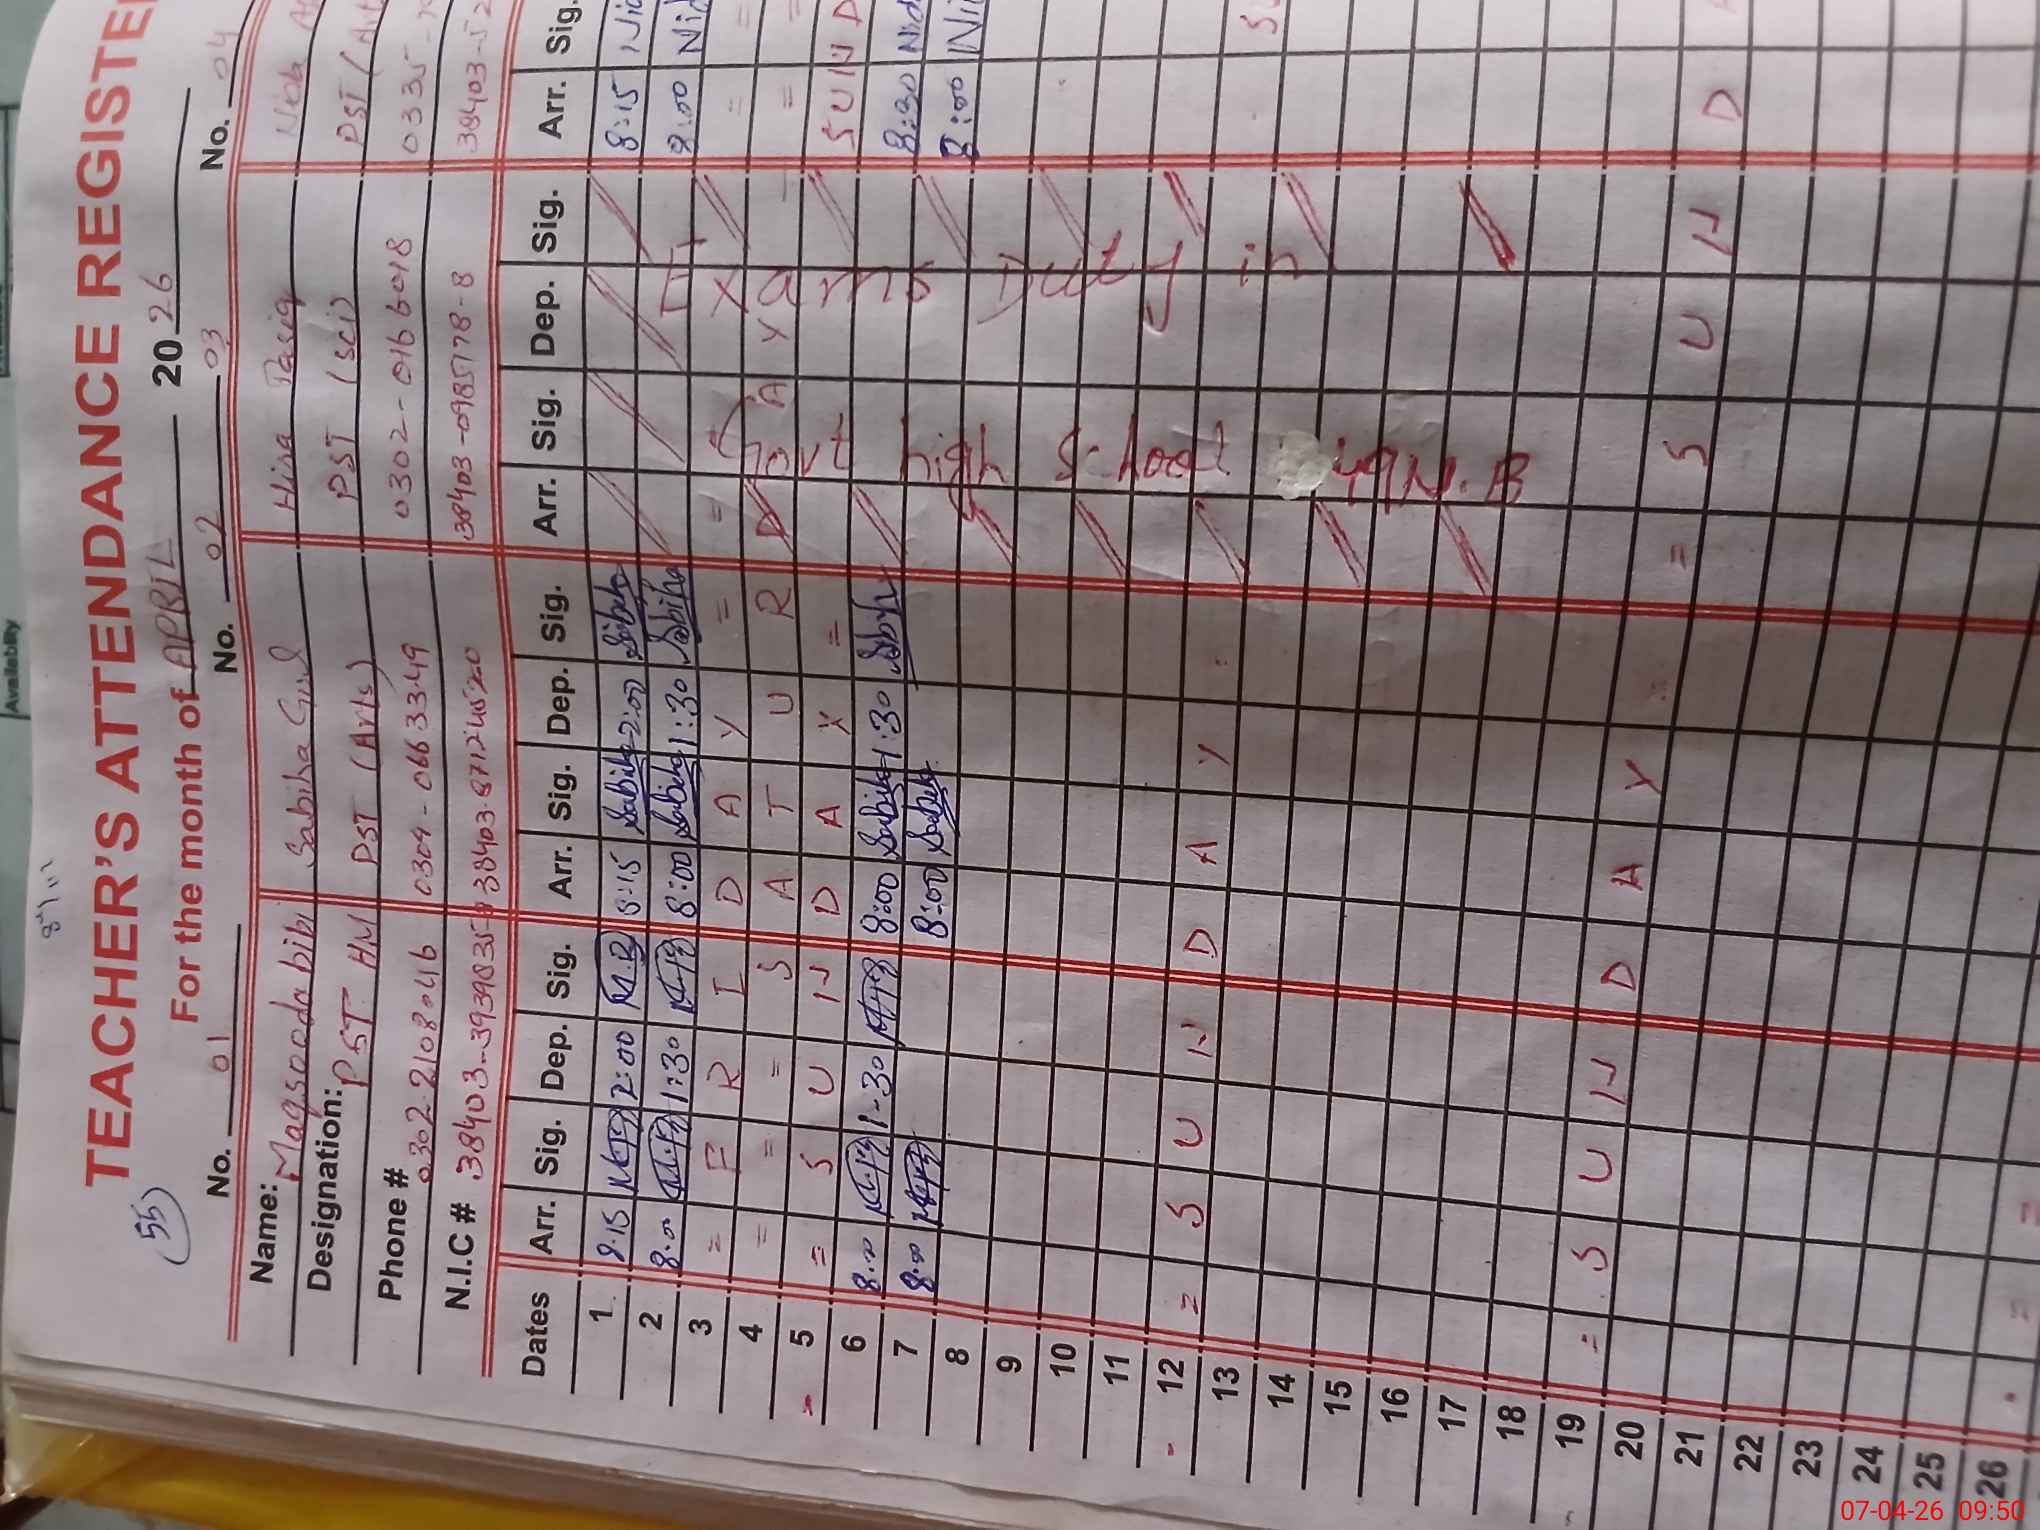 Availablity
(55)
TEACHER'S ATTENDANCE REGISTER
For the month of APRIL 2026
No. 01 No. 02 No. 03 No. 04
Name: Maqsooda bibi Sabiha Gul Hira
Designation: PST HM PST (Arts) PST (sci) PST (Art
Phone # 0302-2108046 0304-0663349 0302-0166048 0335-
N.I.C # 38403-3939835- 38403-8712452-0 38403-0985178-8 38403-52
Dates Arr. Sig. Dep. Sig. Arr. Sig. Dep. Sig. Arr. Sig. Dep. Sig. Arr. Sig.
1 8:15 M.B 2:00 M.B 8:15 Sabiha 2:00 Sabiha 8:15 Nid
2 8:00 M.B 1:30 M.B 8:00 Sabiha 1:30 Sabiha 8:00 Nid
3 = F R I D A Y = =
4 = = = S A T U R D A Y = =
5 = S U N D A Y = S U N D
6 8:00 M.B 1-30 M.B 8:00 Sabiha 1:30 Sabiha 8:30 Nid
7 8:00 M.B 8:00 Sabiha 8:00 Nid
Exams Duty in
Govt high School 49 N.B
8
9
10
11
12 = S U N D A Y
13
14
15
16
17
18
19 = S U N D A Y = S U N D
20
21
22
23
24
25
26 =
07-04-26 09:50